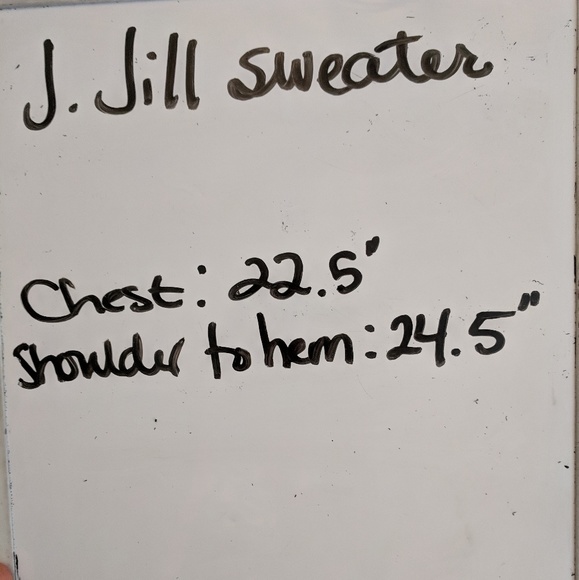 J. Jill sweater
Chest: 22.5"
Shoulder to hem: 24.5"